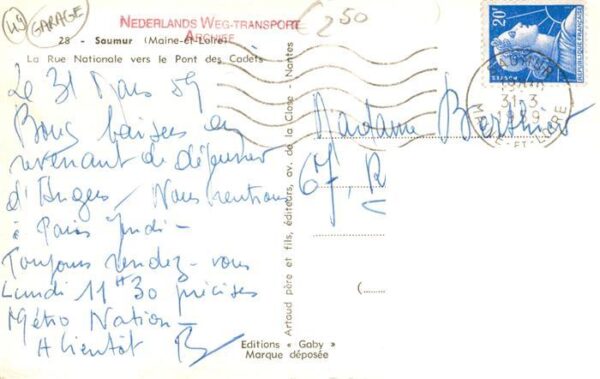 49
GARAGE
NEDERLANDS WEG-TRANSPORT
ARCHIEF
€ 2,50
28 - Saumur (Maine-et-Loire)
La Rue Nationale vers le Pont des Cadets
Le 31 Mars 59
Bons baisers en
revenant de
d'Angers. Nous rentrons
à Paris Jeudi -
Toujours rendez-vous
Lundi 11H30 précises
Métro Nation -
A bientôt B
Artaud père et fils, éditeurs, av. de la Close - Nantes
Editions « Gaby »
Marque déposée
20F
REPUBLIQUE FRANÇAISE
POSTES
SAUMUR
31-3
1959
MAINE-ET-LOIRE
Madame Berthier
67, R
(........)